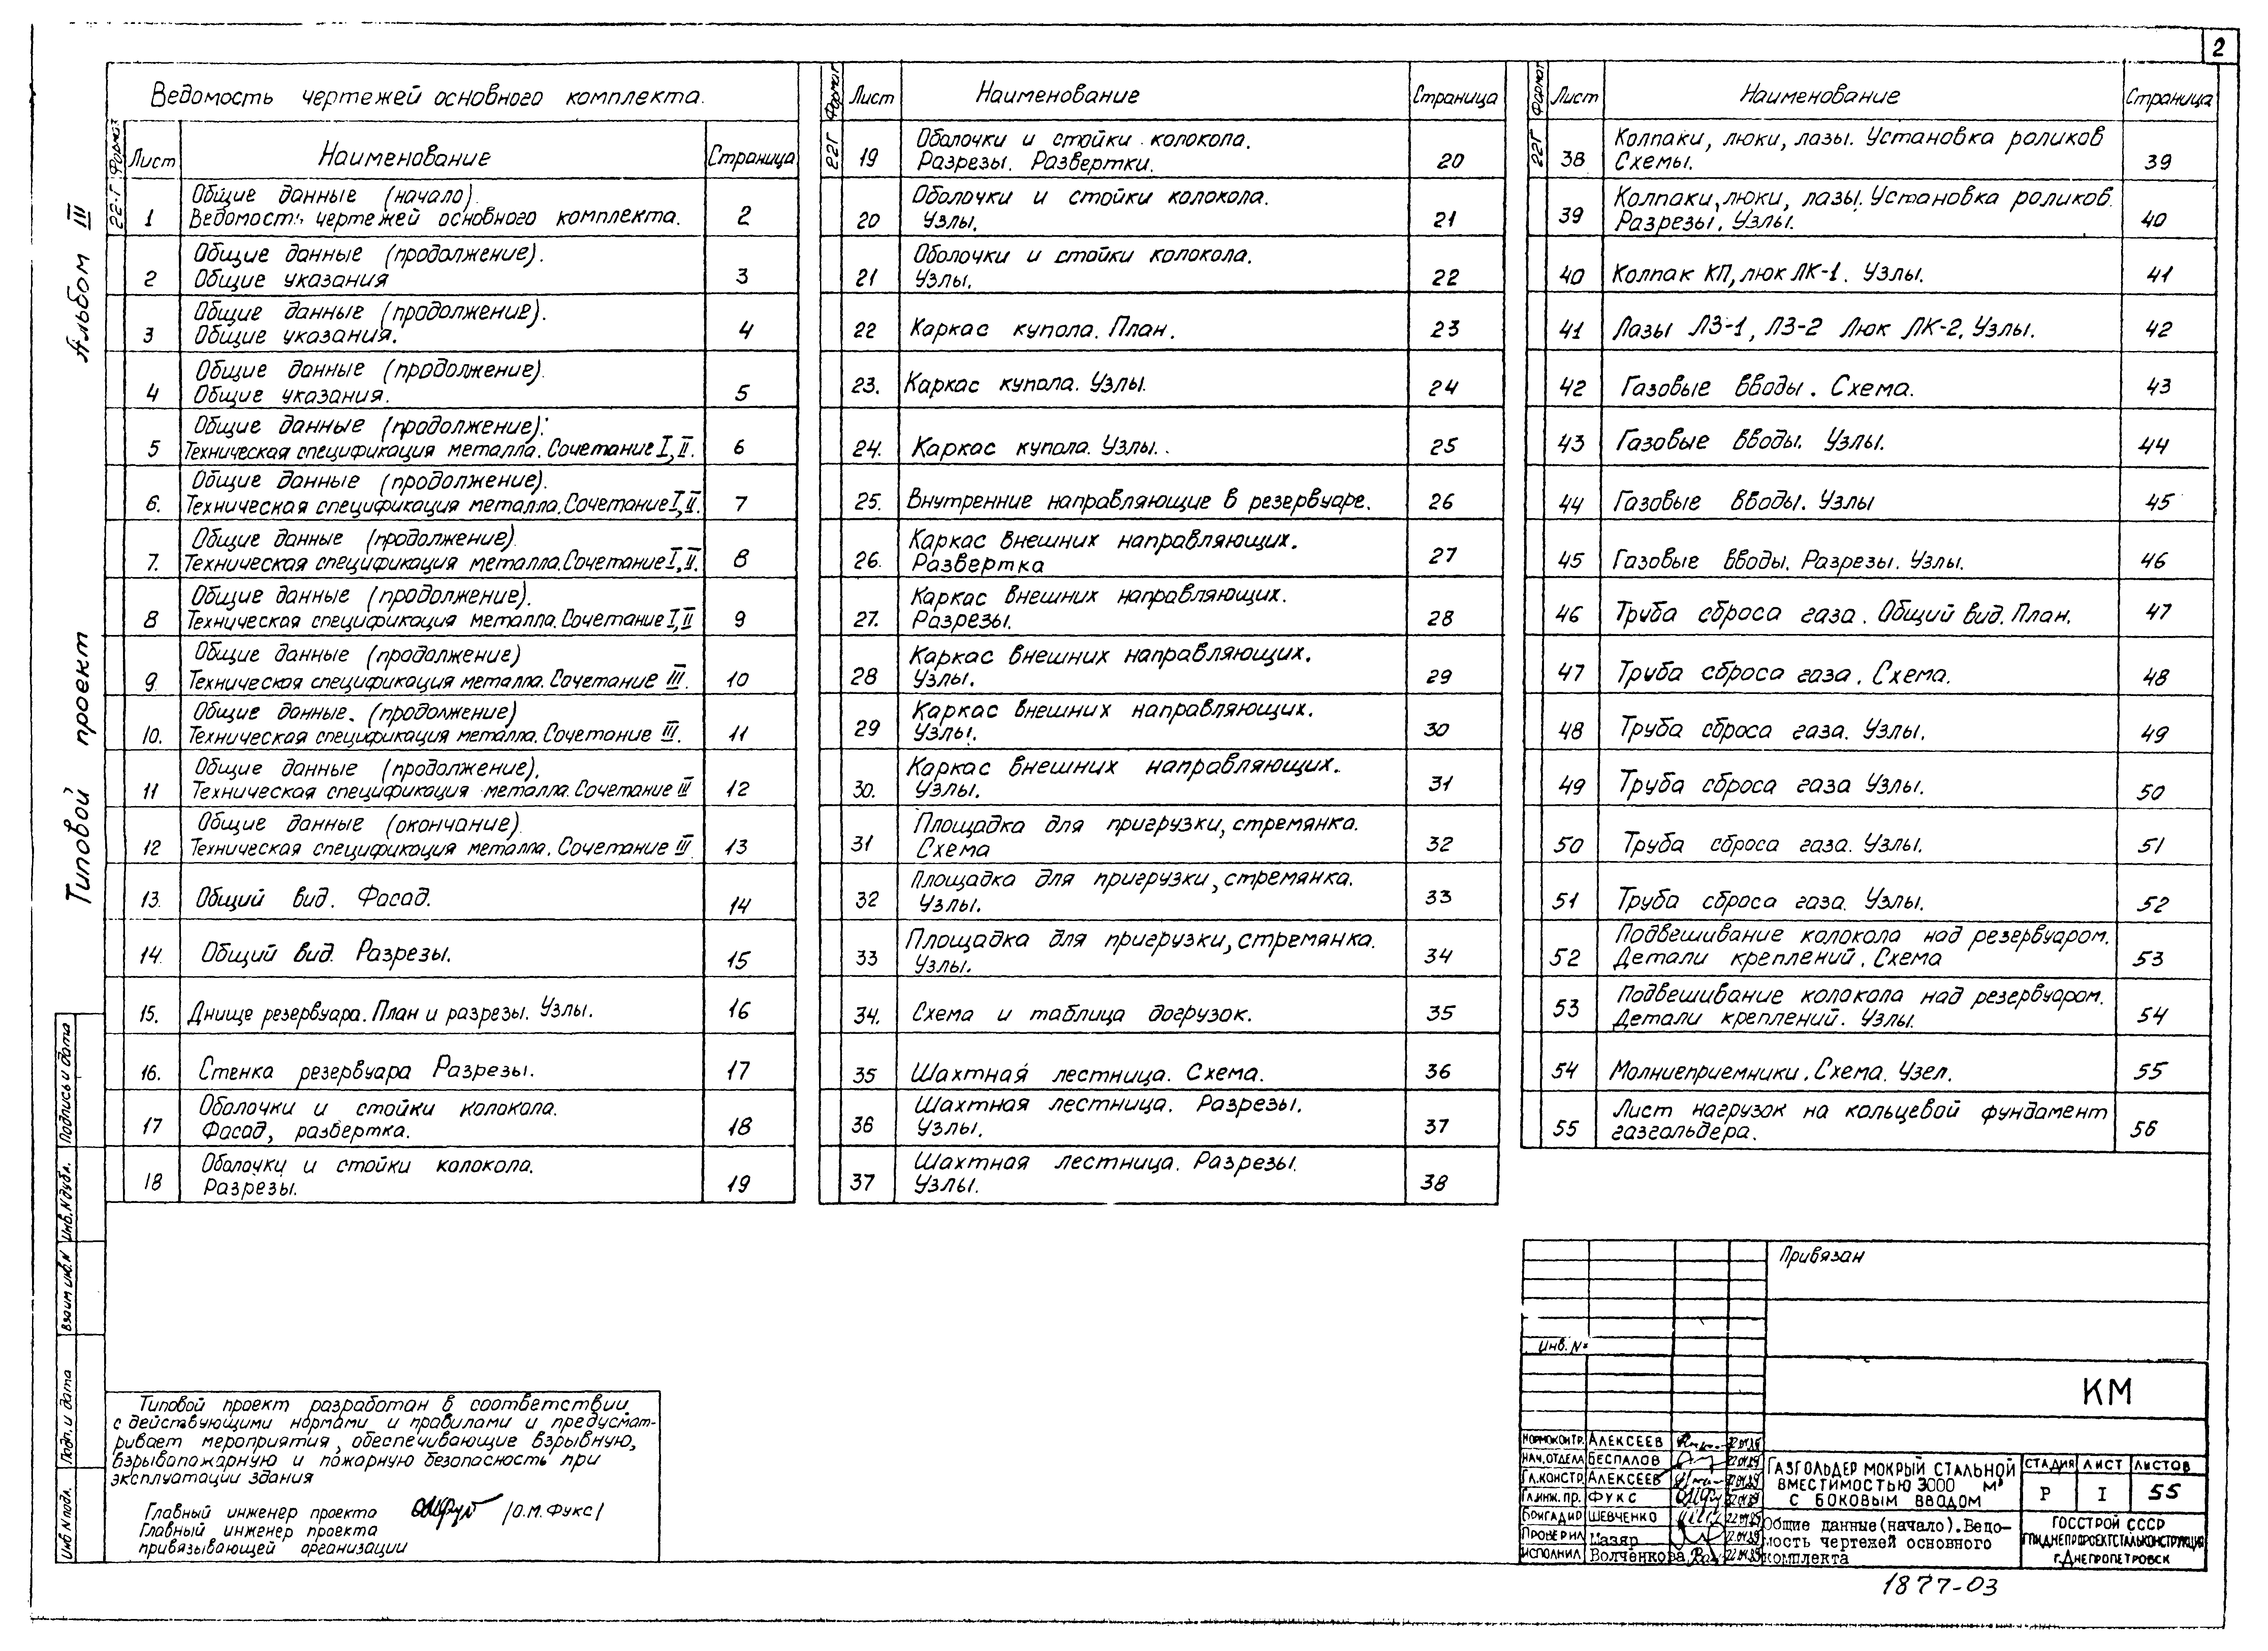 2
Типовой проект Альбом III
Ведомость чертежей основного комплекта.
Формат Лист Наименование Страница
22-Г
1 Общие данные (начало).
Ведомость чертежей основного комплекта. 2
2 Общие данные (продолжение).
Общие указания 3
3 Общие данные (продолжение).
Общие указания. 4
4 Общие данные (продолжение).
Общие указания. 5
5 Общие данные (продолжение).
Техническая спецификация металла. Сочетание I, II. 6
6. Общие данные (продолжение).
Техническая спецификация металла. Сочетание I, II. 7
7. Общие данные (продолжение).
Техническая спецификация металла. Сочетание I, II. 8
8 Общие данные (продолжение).
Техническая спецификация металла. Сочетание I, II 9
9 Общие данные (продолжение)
Техническая спецификация металла. Сочетание III. 10
10. Общие данные. (продолжение)
Техническая спецификация металла. Сочетание III. 11
11 Общие данные (продолжение).
Техническая спецификация металла. Сочетание III 12
12 Общие данные (окончание)
Техническая спецификация металла. Сочетание III 13
13. Общий вид. Фасад. 14
14. Общий вид. Разрезы. 15
15. Днище резервуара. План и разрезы. Узлы. 16
16. Стенка резервуара Разрезы. 17
17 Оболочки и стойки колокола.
Фасад, развертка. 18
18 Оболочки и стойки колокола.
Разрезы. 19
Формат Лист Наименование Страница
22Г
19 Оболочки и стойки колокола.
Разрезы. Развертки. 20
20 Оболочки и стойки колокола.
Узлы. 21
21 Оболочки и стойки колокола.
Узлы. 22
22 Каркас купола. План. 23
23. Каркас купола. Узлы. 24
24. Каркас купола. Узлы. 25
25. Внутренние направляющие в резервуаре. 26
26. Каркас внешних направляющих.
Развертка 27
27. Каркас внешних направляющих.
Разрезы. 28
28 Каркас внешних направляющих.
Узлы. 29
29 Каркас внешних направляющих.
Узлы. 30
30. Каркас внешних направляющих.
Узлы. 31
31 Площадка для пригрузки, стремянка.
Схема 32
32 Площадка для пригрузки, стремянка.
Узлы. 33
33 Площадка для пригрузки, стремянка.
Узлы. 34
34. Схема и таблица догрузок. 35
35 Шахтная лестница. Схема. 36
36 Шахтная лестница. Разрезы.
Узлы. 37
37 Шахтная лестница. Разрезы.
Узлы. 38
Формат Лист Наименование Страница
22Г
38 Колпаки, люки, лазы. Установка роликов
Схемы. 39
39 Колпаки, люки, лазы. Установка роликов.
Разрезы. Узлы. 40
40 Колпак КП, люк ЛК-1. Узлы. 41
41 Лазы ЛЗ-1, ЛЗ-2 Люк ЛК-2. Узлы. 42
42 Газовые вводы. Схема. 43
43 Газовые вводы. Узлы. 44
44 Газовые вводы. Узлы 45
45 Газовые вводы. Разрезы. Узлы. 46
46 Труба сброса газа. Общий вид. План. 47
47 Труба сброса газа. Схема. 48
48 Труба сброса газа. Узлы. 49
49 Труба сброса газа Узлы. 50
50 Труба сброса газа. Узлы. 51
51 Труба сброса газа. Узлы. 52
52 Подвешивание колокола над резервуаром.
Детали креплений. Схема 53
53 Подвешивание колокола над резервуаром.
Детали креплений. Узлы. 54
54 Молниеприемники. Схема. Узел. 55
55 Лист нагрузок на кольцевой фундамент
газгольдера. 56
Подпись и дата
Инв. N дубл.
Взаим инв. N
Подп. и дата
Инв N подл.
Типовой проект разработан в соответствии
с действующими нормами и правилами и предусмат-
ривает мероприятия, обеспечивающие взрывную,
взрывопожарную и пожарную безопасность при
эксплуатации здания
Главный инженер проекта /О.М.Фукс/
Главный инженер проекта
привязывающей организации
Привязан
Инв. №
КМ
НОРМОКОНТР. АЛЕКСЕЕВ
НАЧ.ОТДЕЛА БЕСПАЛОВ
ГЛ.КОНСТР. АЛЕКСЕЕВ
ГЛ.ИНЖ.ПР. ФУКС
БРИГАДИР ШЕВЧЕНКО
ПРОВЕРИЛ Мазяр
ИСПОЛНИЛ Волченкова
ГАЗГОЛЬДЕР МОКРЫЙ СТАЛЬНОЙ
ВМЕСТИМОСТЬЮ 3000 м³
С БОКОВЫМ ВВОДОМ
СТАДИЯ ЛИСТ ЛИСТОВ
Р I 55
Общие данные (начало). Ведо-
мость чертежей основного
комплекта
ГОССТРОЙ СССР
ГПИ ДНЕПРПРОЕКТСТАЛЬКОНСТРУКЦИЯ
г. ДНЕПРОПЕТРОВСК
1877-03